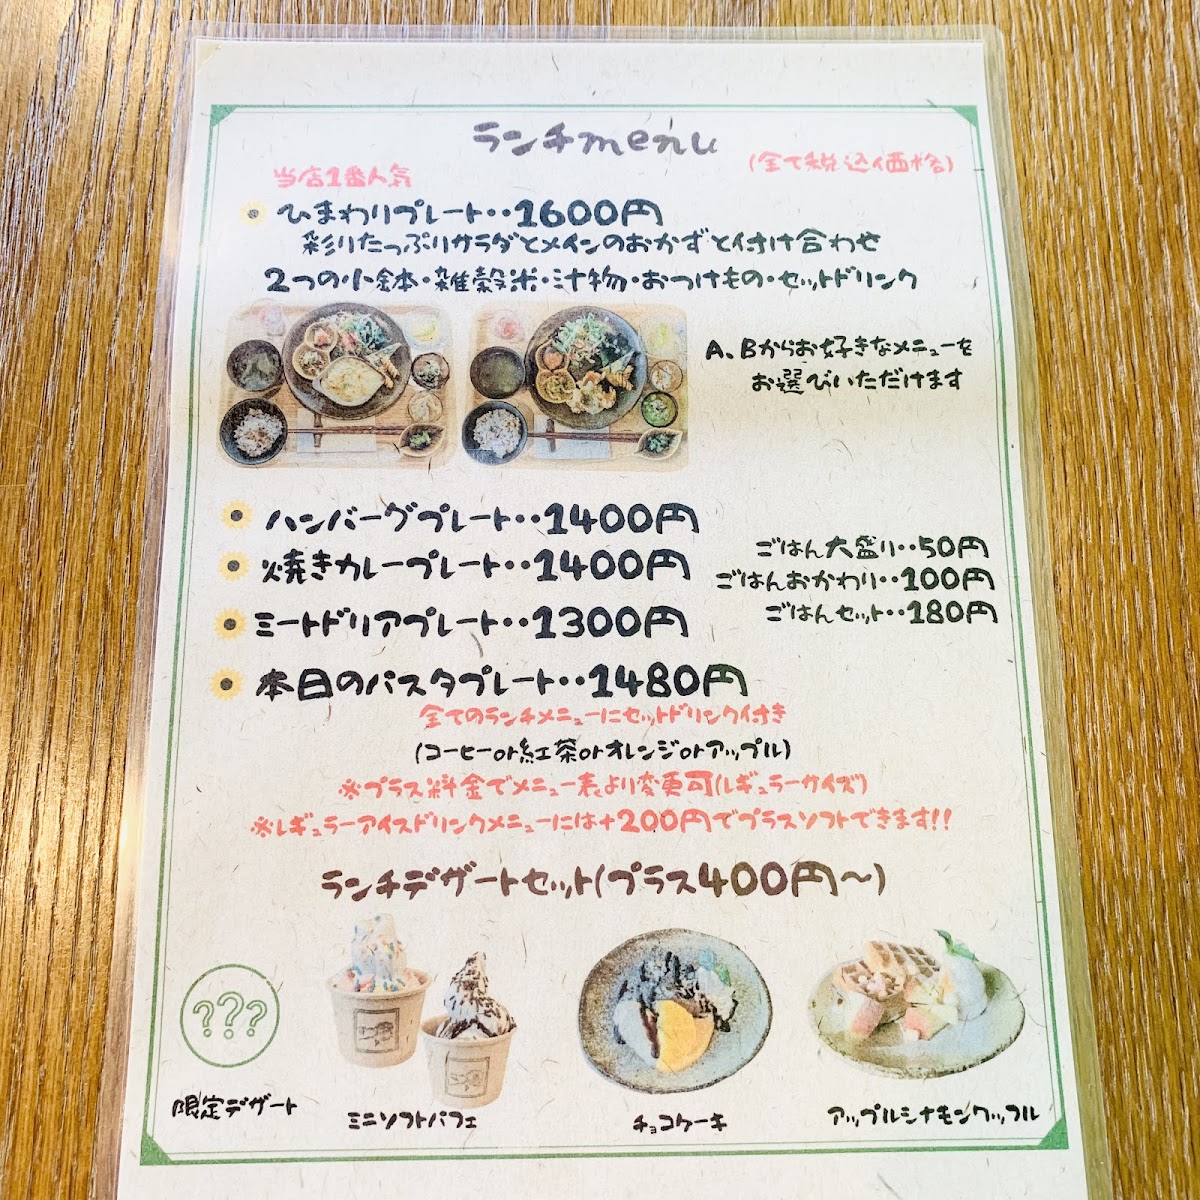 ランチmenu
(全て税込価格)
当店1番人気
ひまわりプレート・・1600円
彩りたっぷりサラダとメインのおかずと付け合わせ
2つの小鉢・雑穀米・汁物・おつけもの・セットドリンク
A、Bからお好きなメニューを
お選びいただけます
ハンバーグプレート・・1400円
焼きカレープレート・・1400円
ミートドリアプレート・・1300円
本日のパスタプレート・・1480円
ごはん大盛り・・50円
ごはんおかわり・・100円
ごはんセット・・180円
全てのランチメニューにセットドリンク付き
(コーヒーor紅茶orオレンジorアップル)
※プラス料金でメニュー表より変更可(レギュラーサイズ)
※レギュラーアイスドリンクメニューには+200円でプラスソフトできます!!
ランチデザートセット(プラス400円〜)
???
限定デザート
ミニソフトパフェ
チョコケーキ
アップルシナモンワッフル